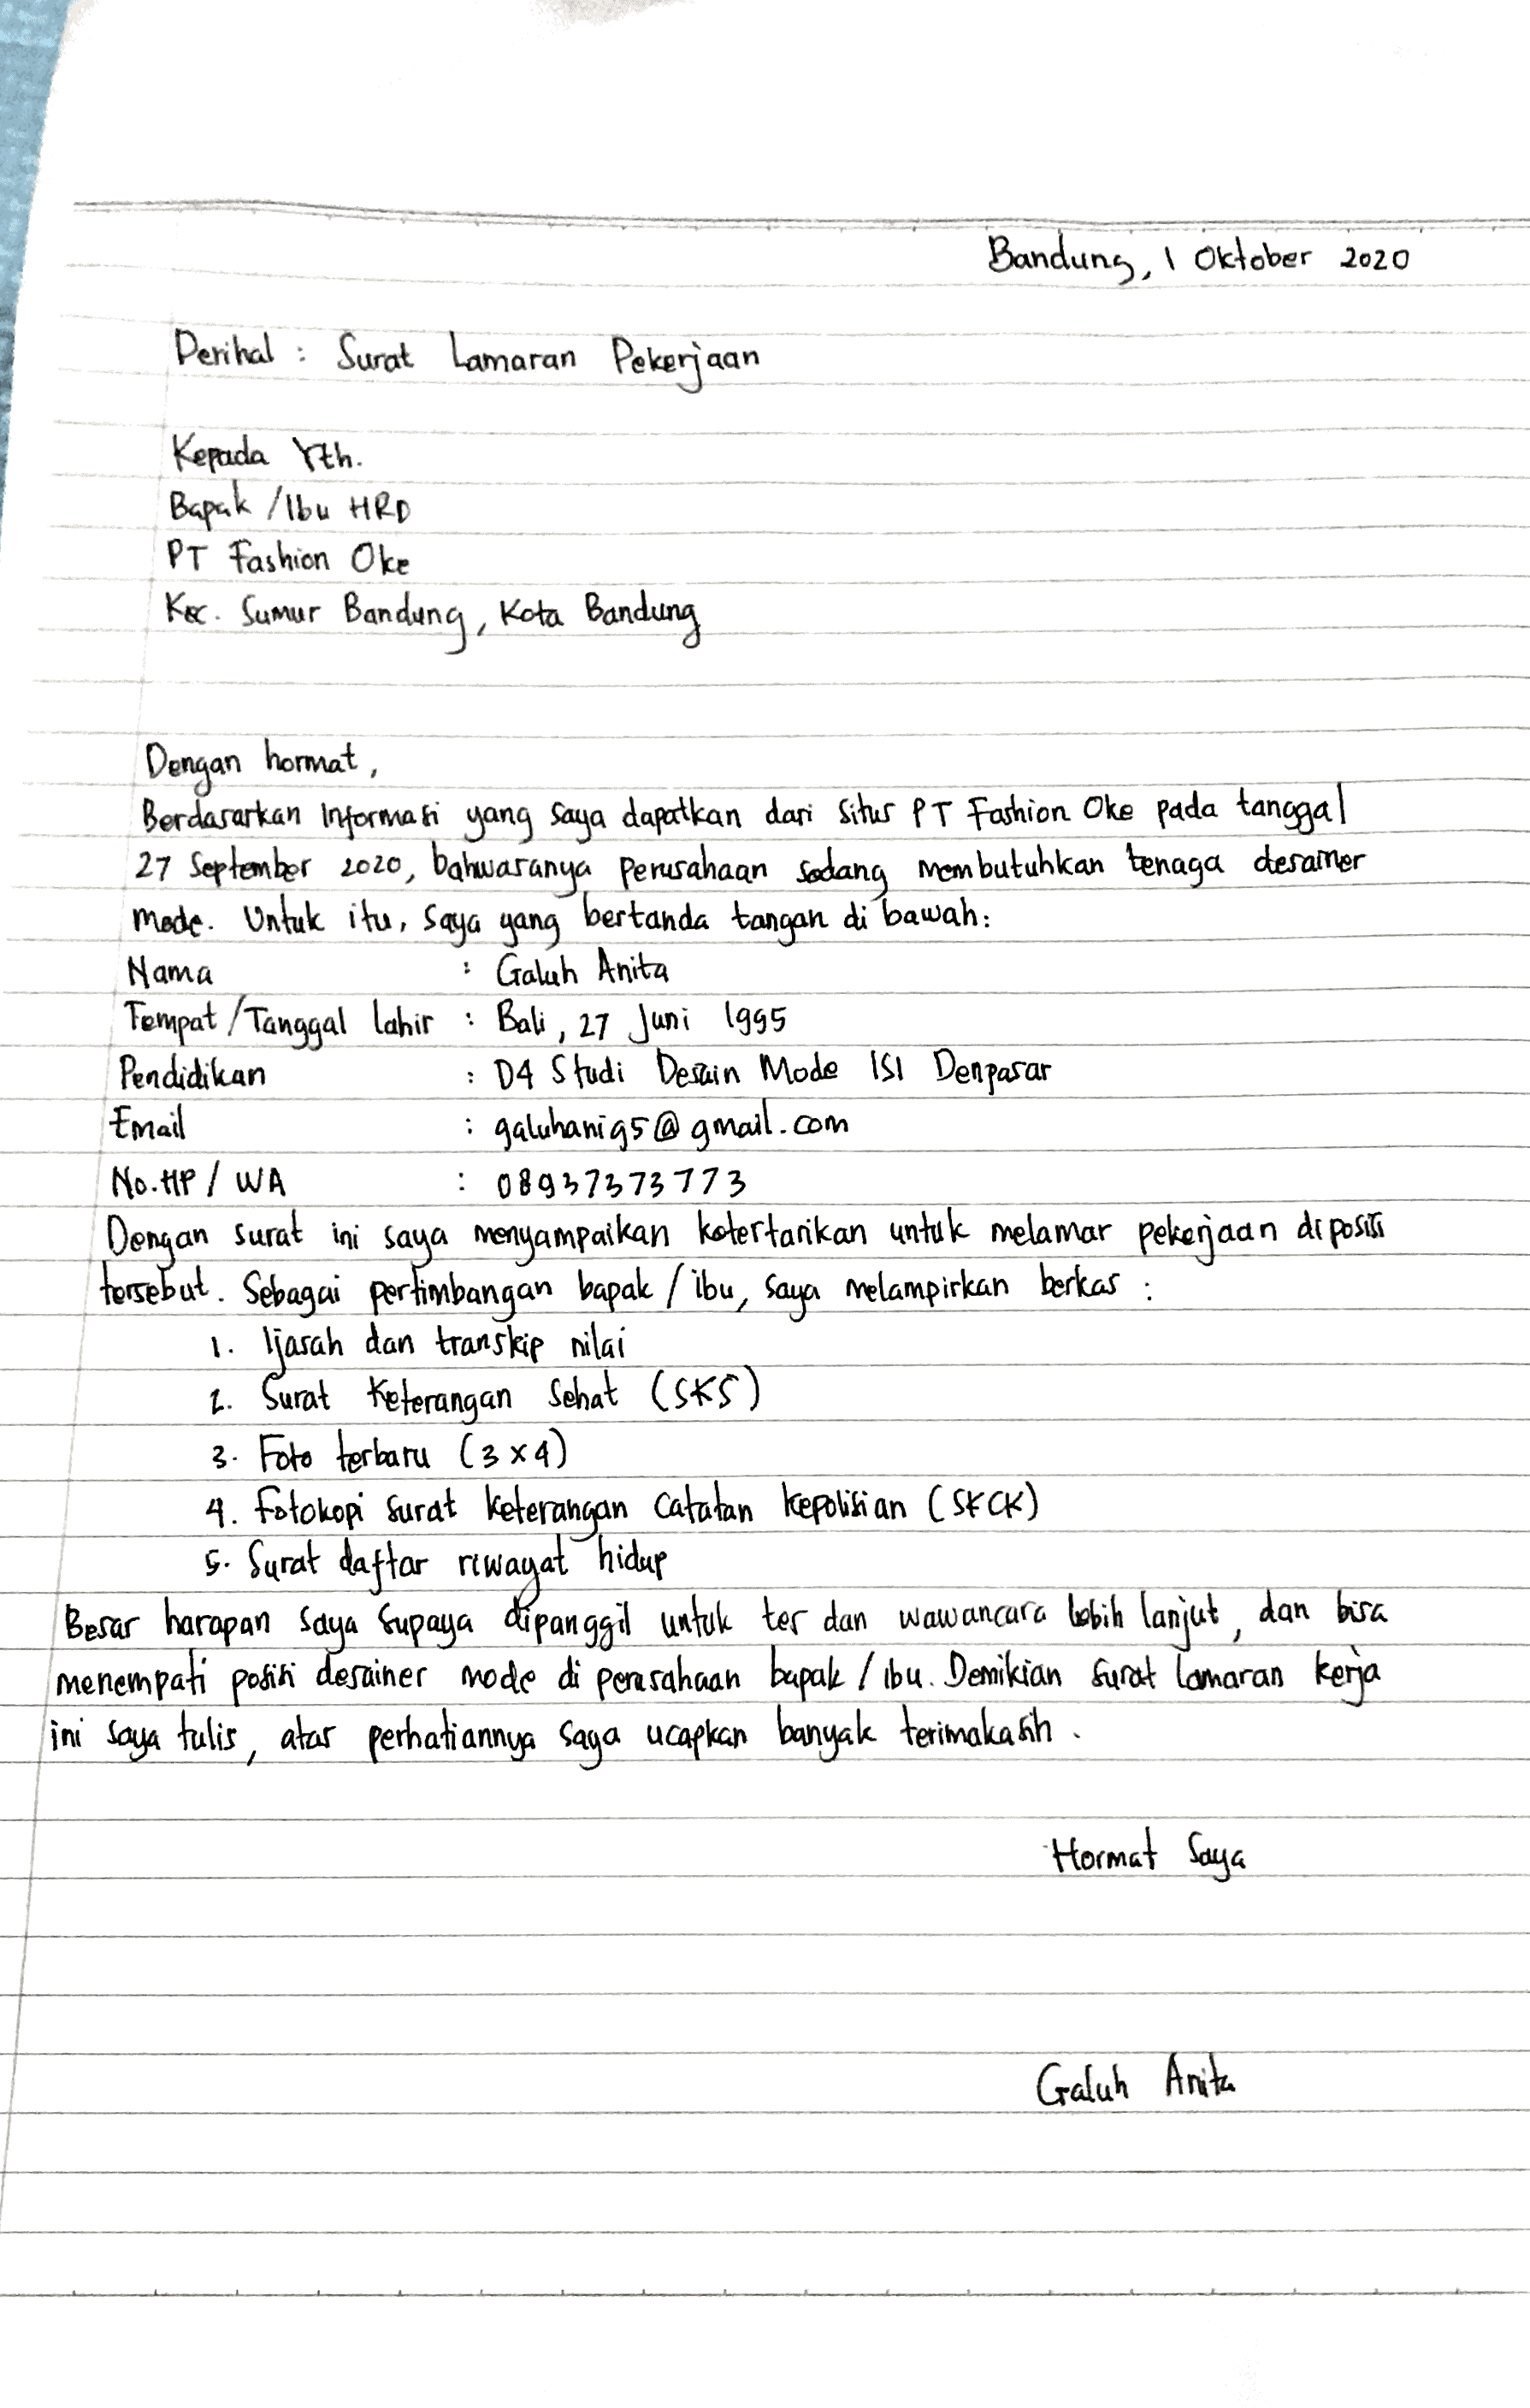 Bandung, 1 Oktober 2020
Perihal : Surat Lamaran Pekerjaan
Kepada Yth.
Bapak /Ibu HRD
PT Fashion Oke
Kec. Sumur Bandung, Kota Bandung
Dengan hormat,
Berdasarkan Informasi yang saya dapatkan dari situs PT Fashion Oke pada tanggal
27 September 2020, bahwasanya perusahaan sedang membutuhkan tenaga desainer
mode. Untuk itu, saya yang bertanda tangan di bawah:
Nama : Galuh Anita
Tempat/Tanggal lahir : Bali, 27 Juni 1995
Pendidikan : D4 Studi Desain Mode ISI Denpasar
Email : galuhani95@gmail.com
No.HP / WA : 08937373773
Dengan surat ini saya menyampaikan ketertarikan untuk melamar pekerjaan di posisi
tersebut. Sebagai pertimbangan bapak / ibu, saya melampirkan berkas :
1. Ijasah dan transkip nilai
2. Surat Keterangan Sehat (SKS)
3. Foto terbaru (3 x 4)
4. Fotokopi surat keterangan catatan kepolisian (SKCK)
5. Surat daftar riwayat hidup
Besar harapan saya supaya dipanggil untuk tes dan wawancara lebih lanjut, dan bisa
menempati posisi desainer mode di perusahaan bapak / ibu. Demikian surat lamaran kerja
ini saya tulis, atas perhatiannya saya ucapkan banyak terimakasih.
Hormat Saya
Galuh Anita